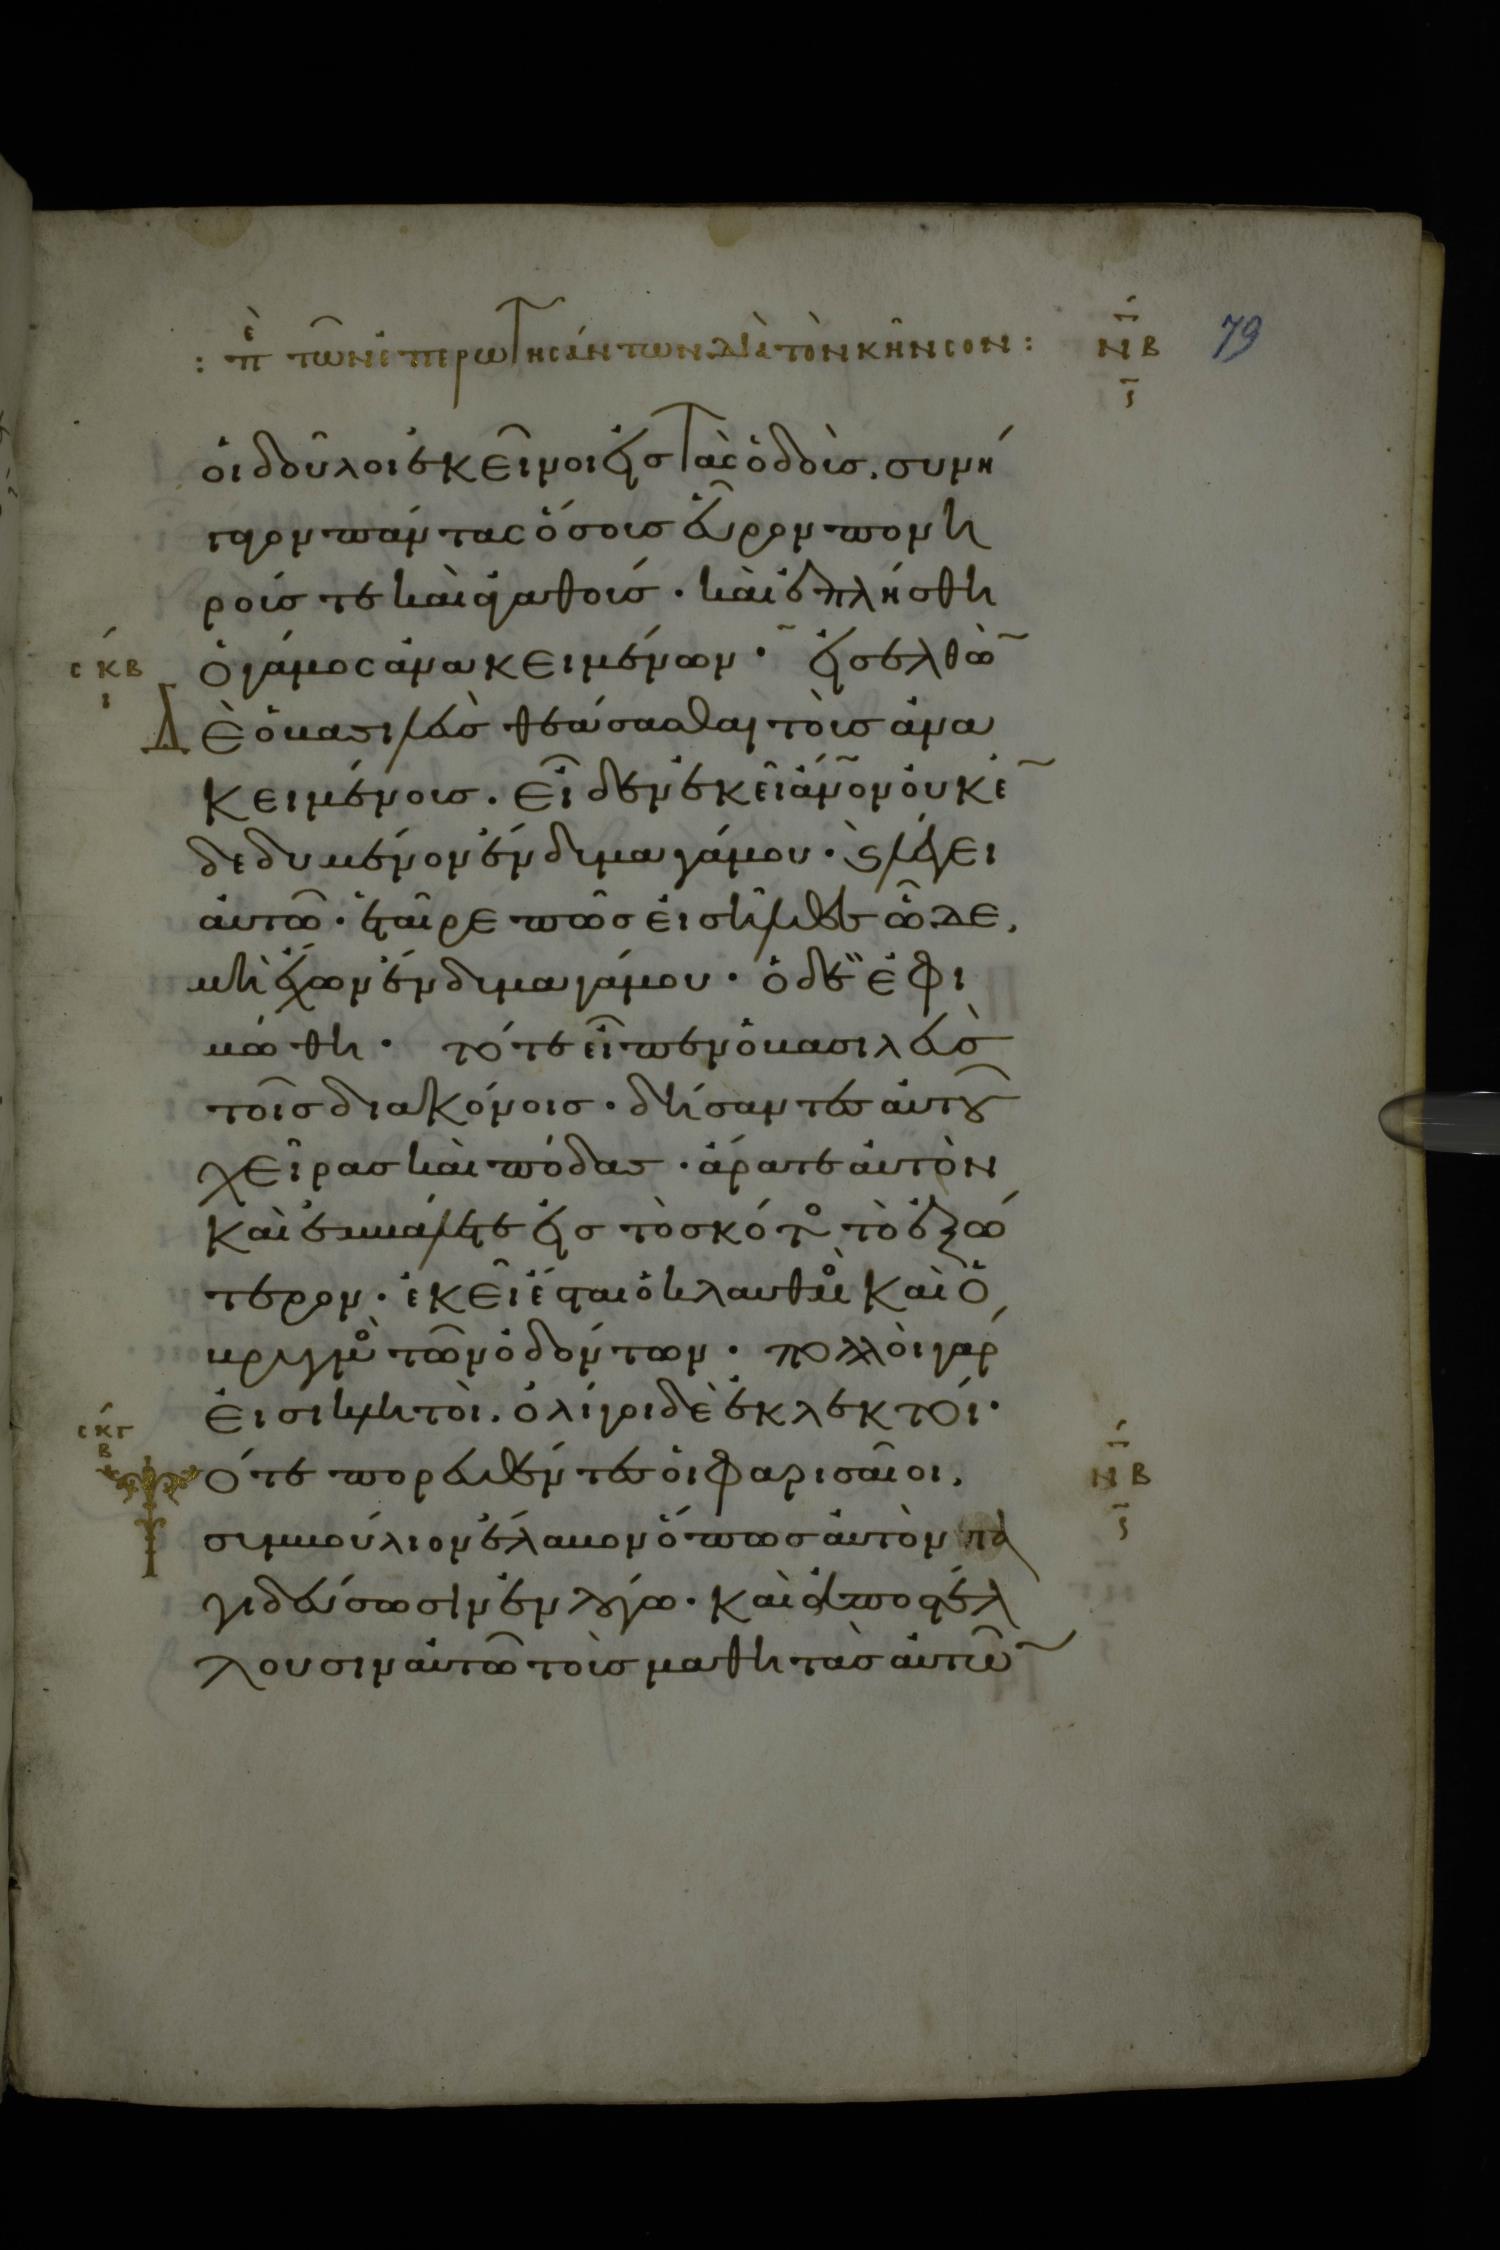 : ἐπ τῶν ἐπερωτησάντων διὰ τὸν κῆνσον :
ΝΒ ϛ
79
οἱ δοῦλοι ἐκεῖνοι εἰς τὰς ὁδοὺς. συνή
γαγον πάντας ὅσους εὗρον πονη
ρούς τε καὶ ἀγαθούς· καὶ ἐπλήσθη
σκβ ι
ὁ γάμος ἀνακειμένων· εἰσελθὼ̅
Δὲ ὁ βασιλεὺς θεάσασθαι τοὺς ἀνα
κειμένους. εἶδεν ἐκεῖ ἄν̅ον οὐκ ἐ̅
δεδυμένον ἔνδυμα γάμου· ϗ λέγει
αὐτῶ· ἑταῖρε πῶς εἰσῆλθες ὧδε,
μὴ ἔχων ἔνδυμα γάμου· ὁ δὲ ἐφι
μώθη· τότε εἶπεν ὁ βασιλεὺς
τοῖς διακόνοις· δήσαντες αὐτοῦ
χεῖρας καὶ πόδας· ἄρατε αὐτὸν
καὶ ἐκβάλετε εἰς τὸ σκότος τὸ ἐξώ
τερον· ἐκεῖ ἔσται ὁ κλαυθμὸς καὶ ὁ
βρυγμὸς τῶν ὀδόντων· πολλοὶ γάρ
εἰσι κλητοὶ. ὀλίγοι δὲ ἐκλεκτοί·
σκγ β
Τότε πορευθέντες οἱ φαρισαῖοι,
ΝΒ ϛ
συμβούλιον ἔλαβον ὅπως αὐτὸν πα
γιδεύσωσιν ἐν λόγω· καὶ ἀποστέλ
λουσιν αὐτῶ τοὺς μαθητὰς αὐτῶ̅